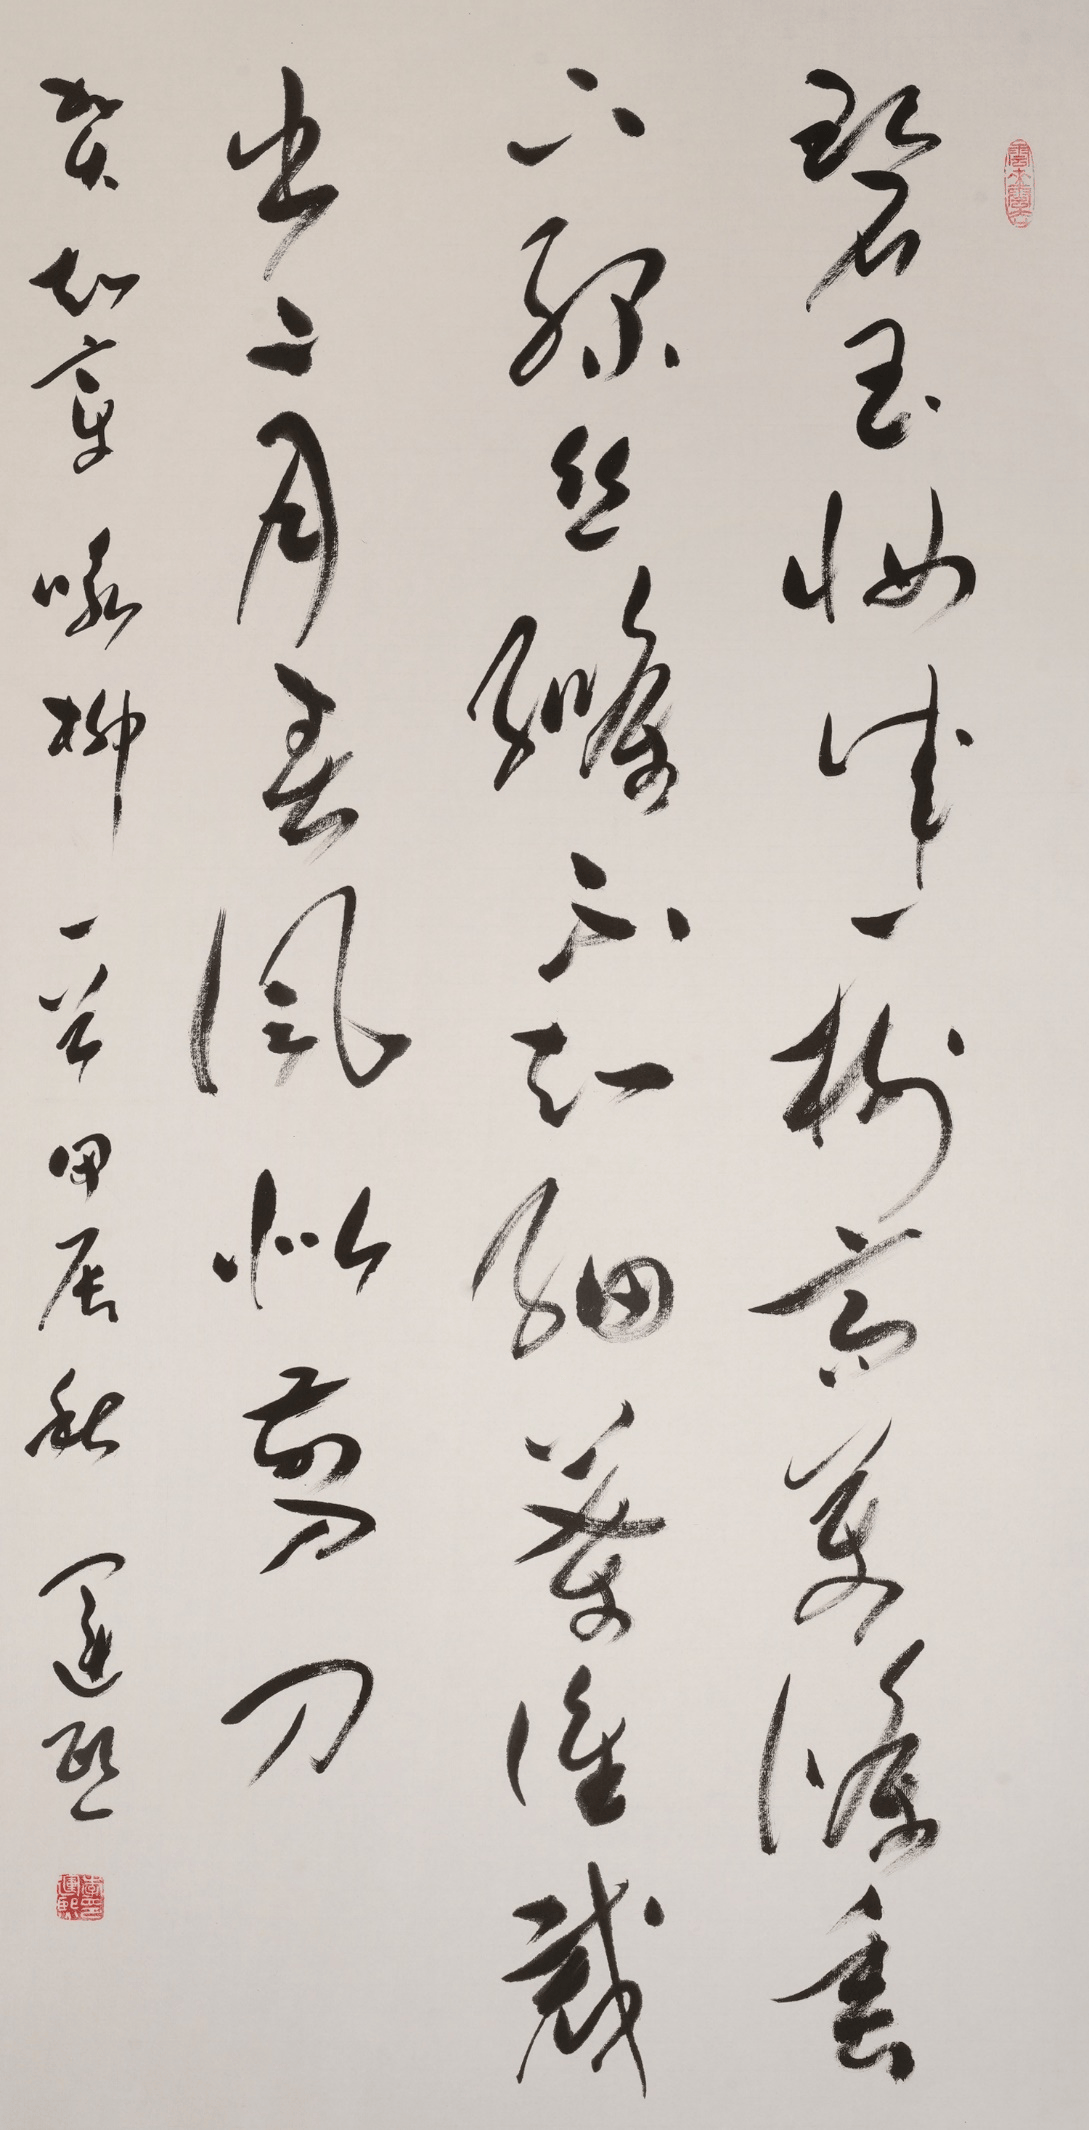 碧玉妝成一樹高萬條垂
下綠丝縧不知細葉誰裁
出二月春風似剪刀
賀知章咏柳一首甲辰秋運熙